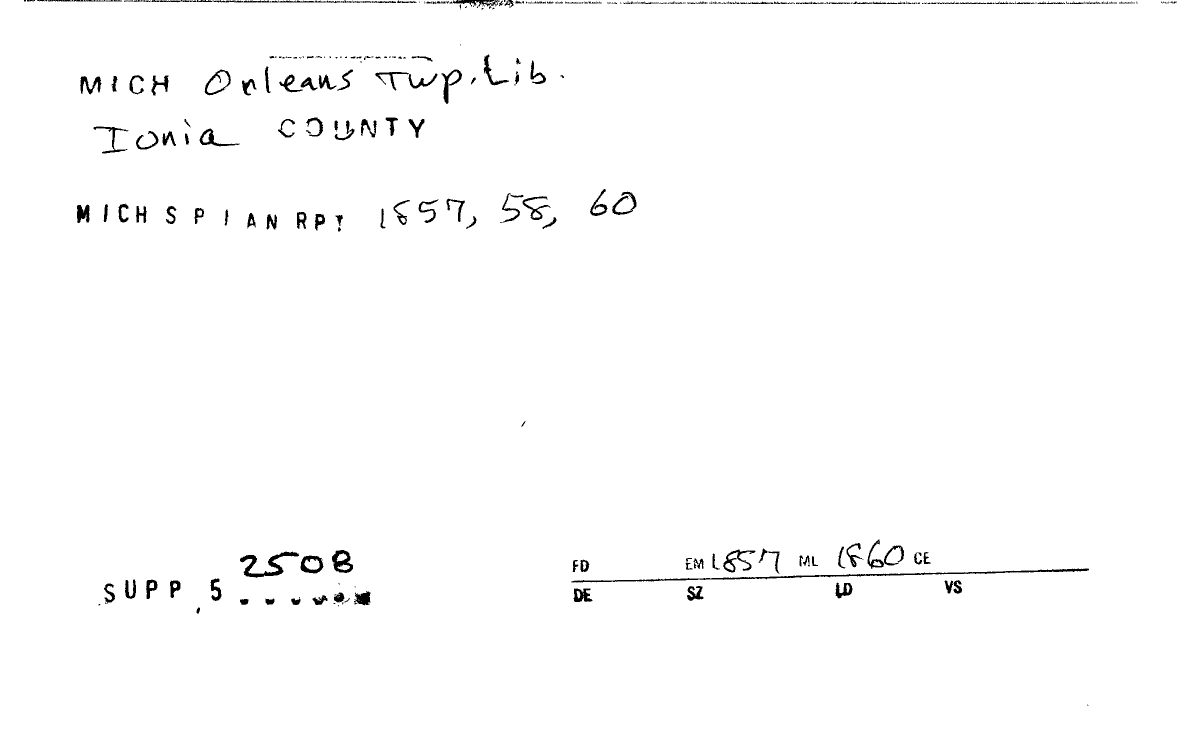 MICH Orleans Twp. Lib.
Ionia COUNTY
MICH S P I AN RPT 1857, 58, 60
2508
SUPP, 5 ......
FD EM 1857 ML 1860 CE
DE SZ LD VS